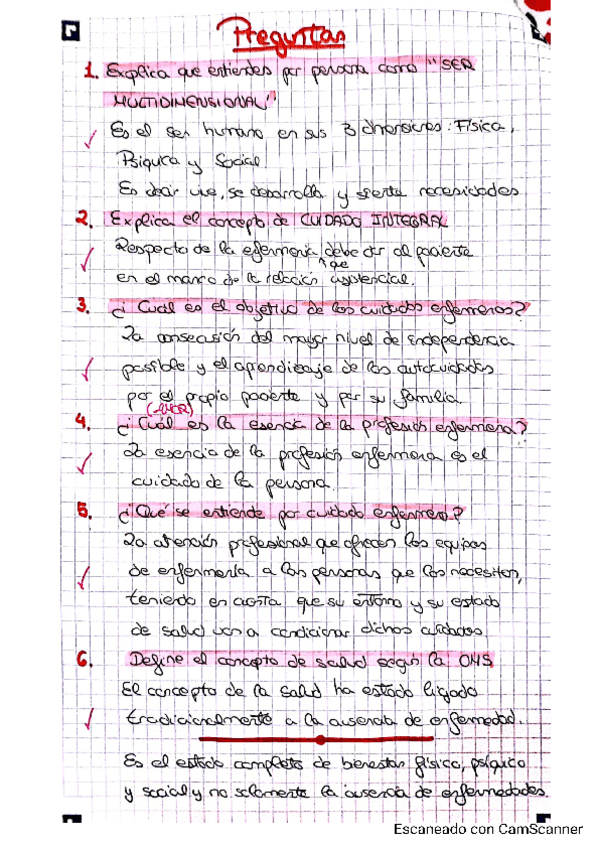 Preguntas
1. Explica que entiendes por persona como "SER
MULTIDIMENSIONAL"
Es el ser humano en sus 3 dimensiones: Física,
Psíquica y Social.
Es decir vive, se desarrolla y siente necesidades
2. Explica el concepto de CUIDADO INTEGRAL
Respecto de la enfermería debe dar al paciente
que
en el marco de la relación asistencial.
3. ¿Cuál es el objetivo de los cuidados enfermeros?
La consecusión del mayor nivel de independencia
posible y el aprendizaje de los autocuidados
por el propio paciente y por su familia.
4. ¿Cuál es la esencia de la profesión enfermera?
La esencia de la profesión enfermera es el
cuidado de la persona.
5. ¿Qué se entiende por cuidado enfermero?
La atención profesional que ofrecen los equipos
de enfermería a las personas que los necesitan,
teniendo en cuenta que su entorno y su estado
de salud van a condicionar dichos cuidados.
6. Define el concepto de salud según la OMS
El concepto de la salud ha estado ligado
tradicionalmente a la ausencia de enfermedad.
Es el estado completo de bienestar físico, psíquico
y social y no solamente la ausencia de enfermedades.
Escaneado con CamScanner